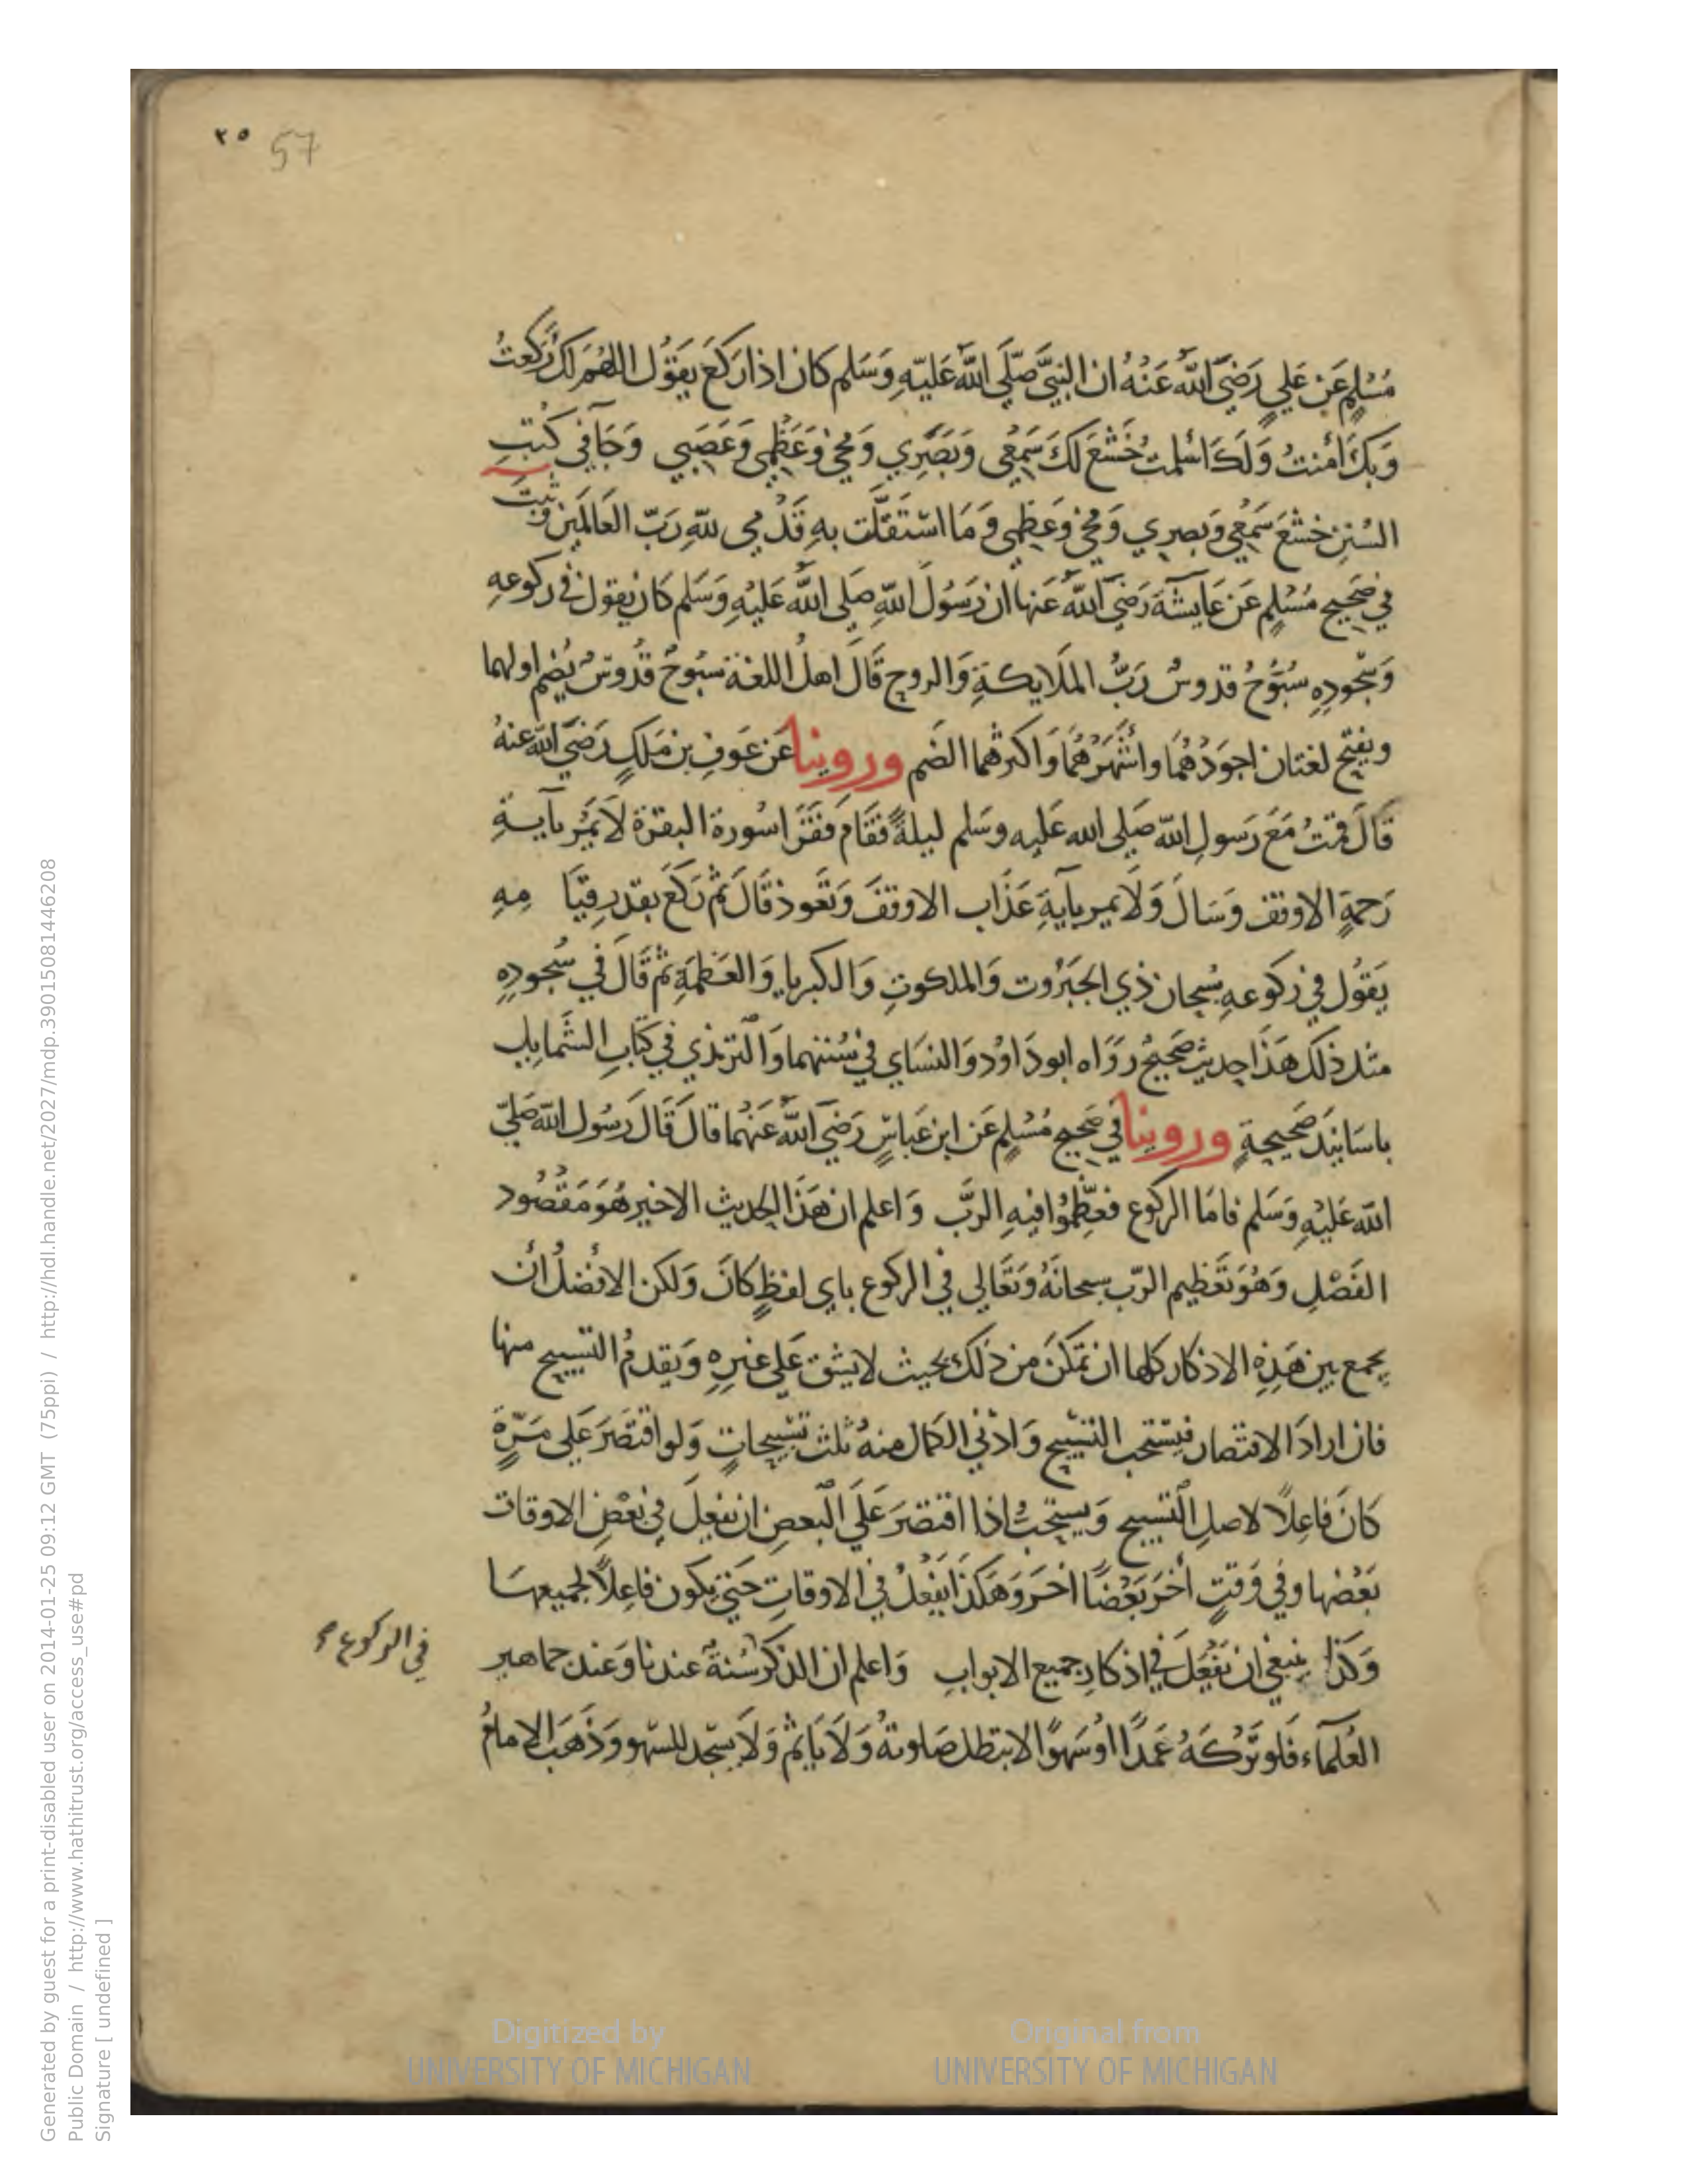 ٢٥ 57
مُسْلِمٍ عَن عَلِيٍ رَضِيَ اللهُ عَنْهُ ان النبيَّ صَلَّى اللهُ عَليَهِ وَسَلم كان اذا رَكَعَ يَقُول اللهُمَ لكَ رَكَعتُ
وَبكَ اۤمَنتُ وَلَكَ اسْلمتُ خَشَعَ لكَ سَمْعِي وَبَصَرِي وَمُخي وَعَظْمِي وَعَصَبِي وَجَآ في كُتبِ
السُنَنِ خشَعَ سَمْعِي وَبصرِي وَمُخي وَعَظِمي وَمَا استَقَلَّت بهِ قَدَمي للهِ رَبّ العَالمَين وثبَتَ
في صَحِيح مُسْلِمٍ عَن عَايشَةَ رَضِيَ اللهُ عَنها ان رَسُولَ اللهِ صَلى اللهُ عَليْهِ وَسَلم كَان يَقول في ركوعهِ
وَسُجُودِهِ سُبّوُحُ قدوسُ رَبُّ الملَايكَةِ وَالروح قَالَ اهلُ اللغة سُبُوحُ قدُوسُ يُضم اولهما
ويفتح لغتان اجوَدُهُمَا واشْهَرُهُمَا وَاكثرهُما الضَم وروينا عَن عَوفِ بن مَلكٍ رَضيَ اللهُ عنهُ
قَالَ قمتُ مَعَ رَسولِ اللهِ صَلى الله عَليه وسَلم ليلةً فقَامَ فقَرَا سُورة البقرَة لاَ يَمُر بآيةِ
رَحمةٍ الا وقف وَسَالَ وَلَا يمر بآيَةِ عَذَاب الا وقفَ وَتَعَوذ قَالَ ثم رَكعَ بقَدرِ قيَا مِهِ
يَقوُل في ركوعهِ سُبحان ذي الجبَرُوت وَالملكوتِ وَالكبريا وَالعَظمَةِ ثم قَالَ في سُجُودِهِ
مثل ذلكَ هَذَا حِديث صَحيحُ رَوَاه ابو دَاوُد وَالنسَاي في سُنَنهما وَالترمذي في كتَابِ الشَمايل
باسَانيدَ صَحيحِةٍ وروينا في صَحيح مُسْلمٍ عَن ابن عَباسٍ رَضيَ اللهُ عَنهُما قالَ قَالَ رَسُول اللهِ صَلي
الله عَليْهِ وَسَلم فامَا الركوع فعَظِّمُوا فيهِ الرَّب وَاعلم ان هَذَا الحديث الاخير هُوَ مَقصُود
الفَصْلِ وَهُوَ تَعَظيم الرّب سبحانَهُ وَتعَالي في الركوع باي لفظٍ كانَ وَلكن الافضلُ أن
يجمع بين هَذِهِ الاذكار كلها ان تمكنَ من ذلكَ بحيث لا يشق عَلي غيرِهِ وَيقدمُ التسبيح منها
فان ارادَ الاقتصار فيَستَحب التسْبيح وَادني الكمال منهُ ثلث تسْبيحاتٍ وَلو اقتصَرَ عَلي مَرَّةٍ
كَانَ فاعِلاً لاصلِ التسبيح وَيستحِبُّ اذا اقتصرَ عَلَي البَعضِ ان يفعِلَ في بَعْضِ الاوقات
بَعْضها وفي وَقتٍ اخَرَ بَعْضًا اخرَ وَهَكذَا يفعَلُ في الاوقاتِ حَتي يكون فاعِلاً لجميعهَا
وَكذا ينبغي ان يفْعَلَ في اذكار جميع الابوابِ وَاعلم ان الذكر سُنةُ عندنا وَعند جماهير
في الركوع صح
العُلمآء فَلو تَرَكَهُ عَمدًا اوْ سَهوًا لا تبَطل صَلوتهُ وَلَا يَاثم وَلَا يَسْجد للسَهو وَذَهَبَ الامامُ
Digitized by UNIVERSITY OF MICHIGAN
Original from UNIVERSITY OF MICHIGAN
Generated by guest for a print-disabled user on 2014-01-25 09:12 GMT (75ppi) / http://hdl.handle.net/2027/mdp.39015081446208
Public Domain / http://www.hathitrust.org/access_use#pd
Signature [ undefined ]